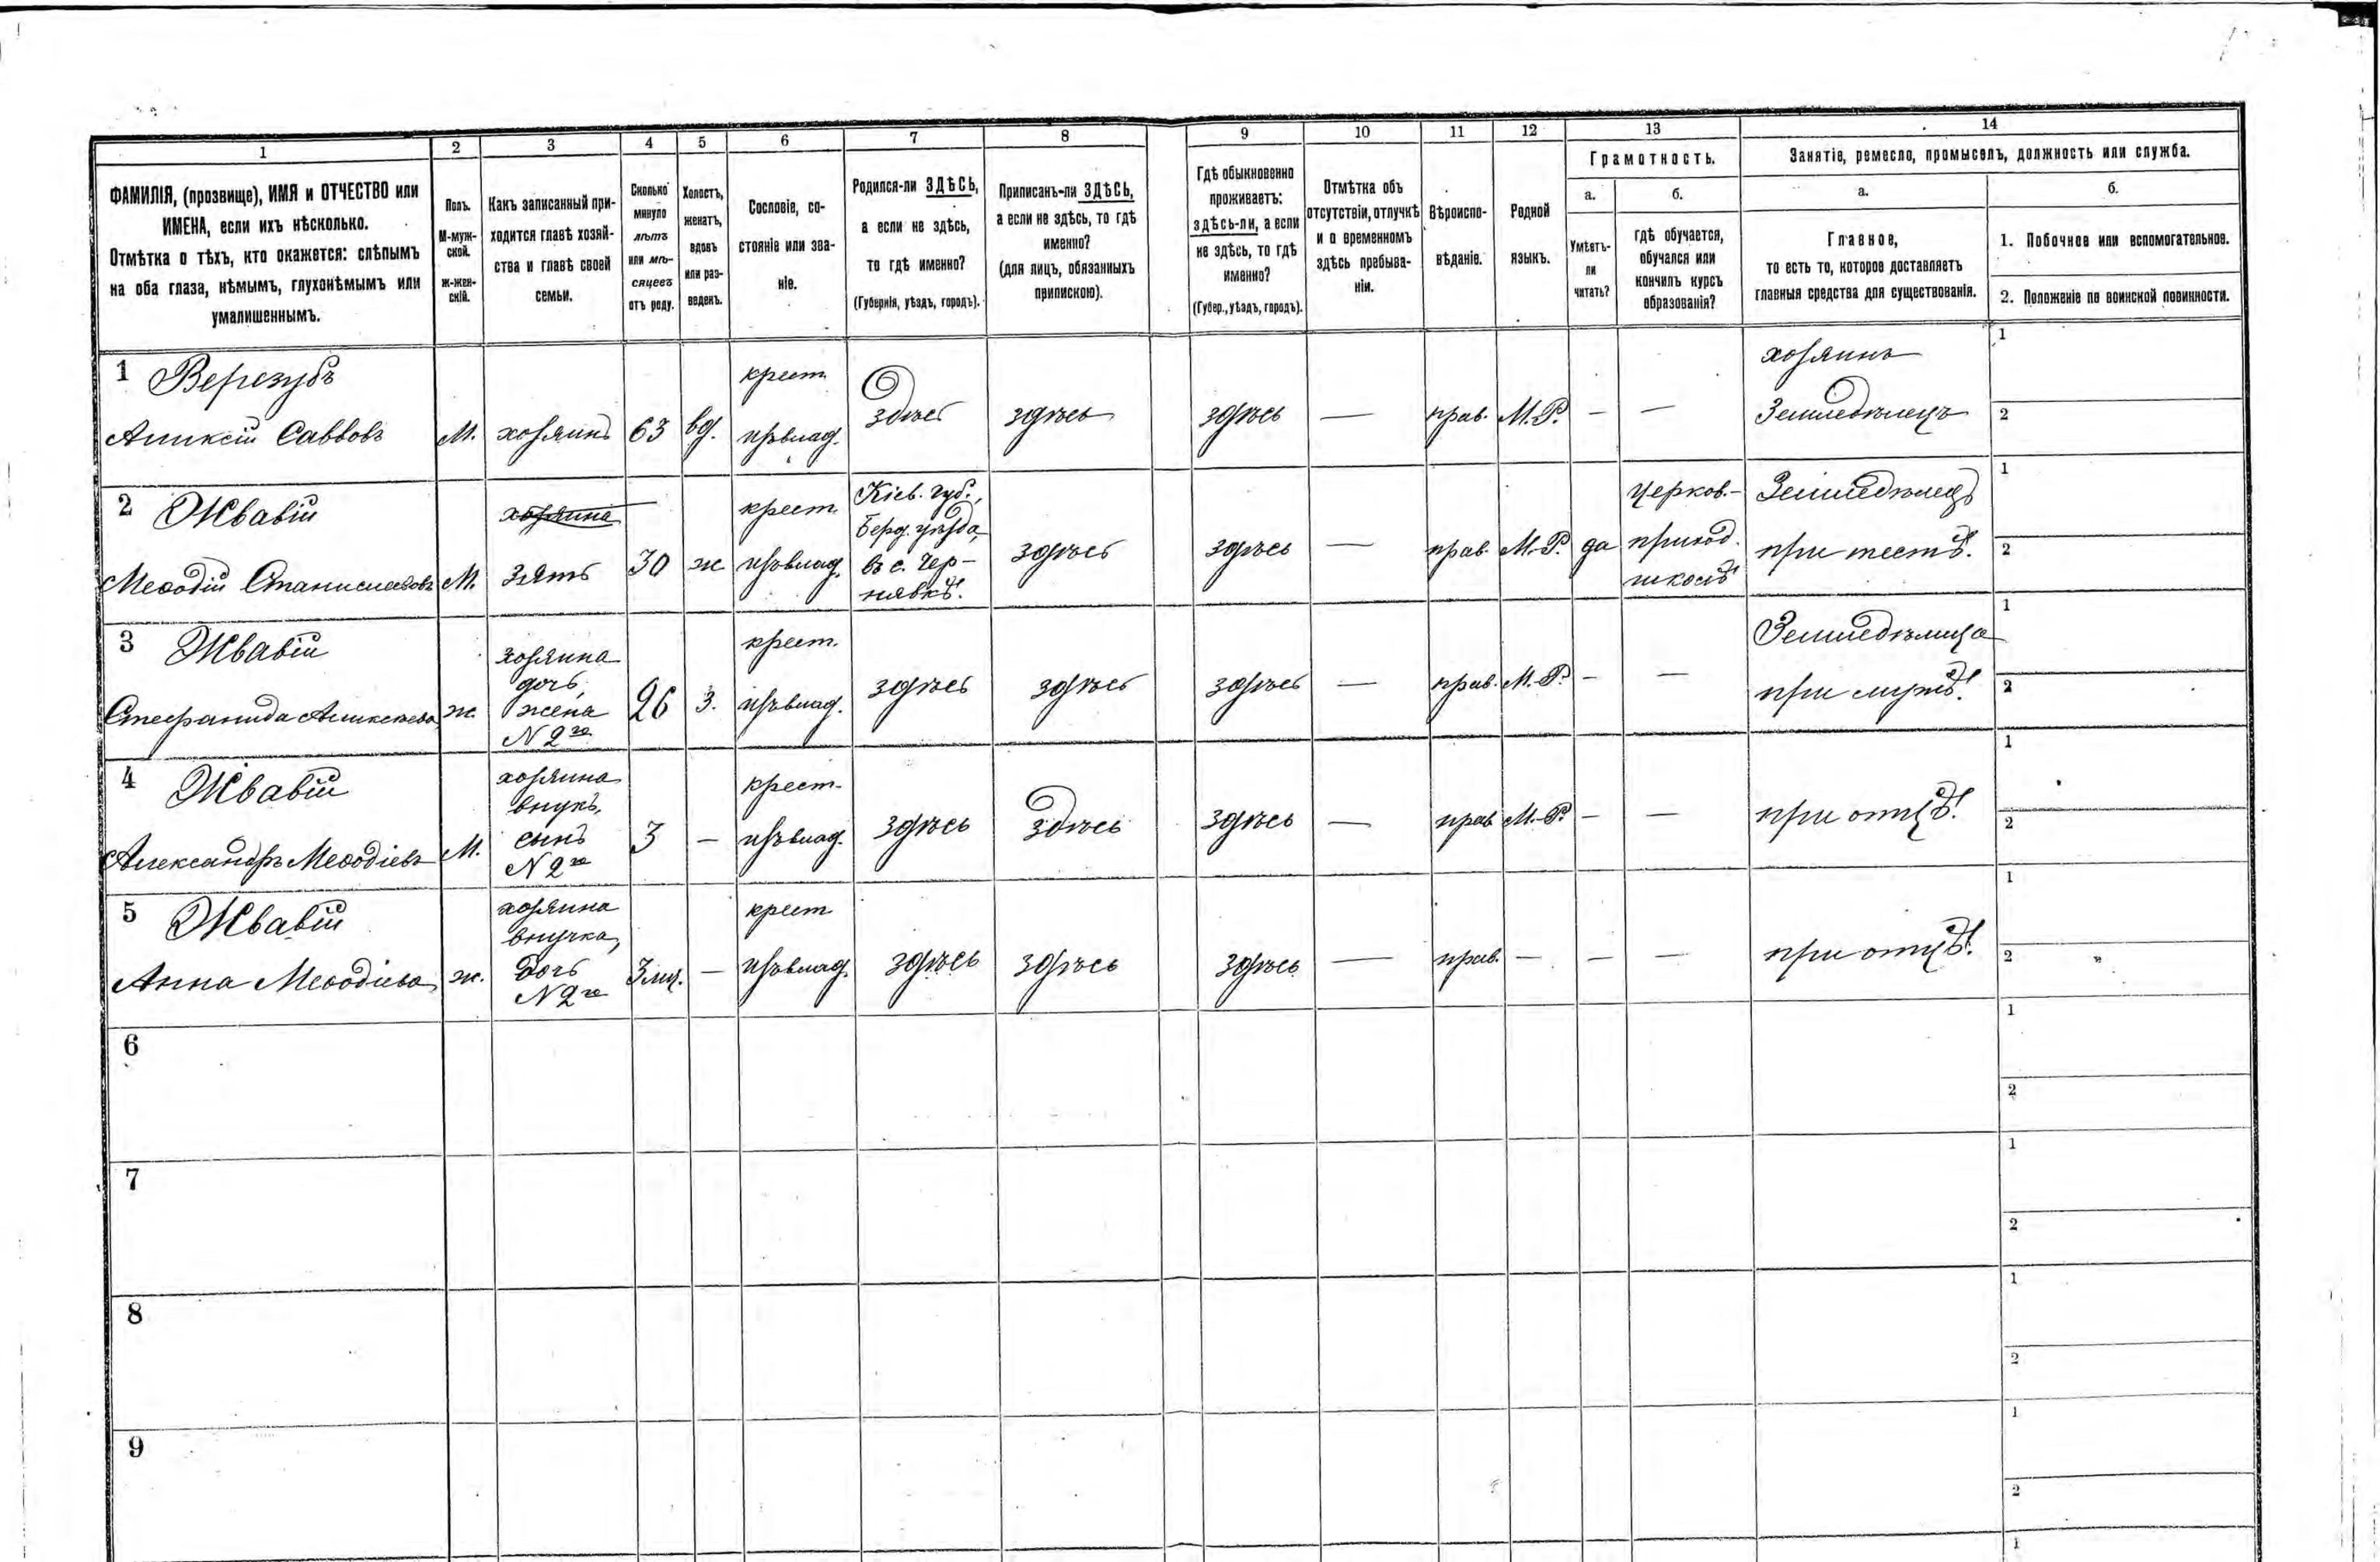 1
2
3
4
5
6
7
8
9
10
11
12
13
14
ФАМИЛІЯ, (прозвище), ИМЯ и ОТЧЕСТВО или
ИМЕНА, если ихъ нѣсколько.
Отмѣтка о тѣхъ, кто окажется: слѣпымъ
на оба глаза, нѣмымъ, глухонѣмымъ или
умалишеннымъ.
Полъ.
М-муж-
ской.
ж-жен-
скій.
Какъ записанный при-
ходится главѣ хозяй-
ства и главѣ своей
семьи.
Сколько
минуло
лѣтъ
или мѣ-
сяцевъ
отъ роду.
Холостъ,
женатъ,
вдовъ
или раз-
веденъ.
Сословіе, со-
стояніе или зва-
ніе.
Родился-ли ЗДѢСЬ,
а если не здѣсь,
то гдѣ именно?
(Губернія, уѣздъ, городъ).
Приписанъ-ли ЗДѢСЬ,
а если не здѣсь, то гдѣ
именно?
(для лицъ, обязанныхъ
припискою).
Гдѣ обыкновенно
проживаетъ:
здѣсь-ли, а если
не здѣсь, то гдѣ
именно?
(Губер., уѣздъ, городъ).
Отмѣтка объ
отсутствіи, отлучкѣ
и о временномъ
здѣсь пребыва-
ніи.
Вѣроиспо-
вѣданіе.
Родной
языкъ.
Грамотность.
а.
Умѣетъ-
ли
читать?
б.
гдѣ обучается,
обучался или
кончилъ курсъ
образованія?
Занятіе, ремесло, промыселъ, должность или служба.
а.
Главное,
то есть то, которое доставляетъ
главныя средства для существованія.
б.
1. Побочное или вспомогательное.
2. Положеніе по воинской повинности.
1 Верезубъ
Аликсій Саввовъ
М.
хозяинъ
63
вд.
крест.
здѣсь
здѣсь
здѣсь
—
прав.
М.Р.
—
—
хозяинъ
Земледѣлецъ
1
2
2 Жвавій
Меѳодій Станиславовъ
М.
хозяина
зять
30
ж
крест.
Кіев. губ.,
Берд. уѣзда,
въ с. Чер-
нявкѣ.
здѣсь
здѣсь
—
прав.
М.-Р.
да
Церков.-
приход.
школѣ
Земледѣлецъ
при тестѣ.
1
2
3 Жвавій
Стефанида Аликсѣева
ж.
хозяина
дочь,
жена
N 2го
26
З.
крест.
здѣсь
здѣсь
здѣсь
—
прав.
М.-Р.
—
—
Земледѣлица
при мужѣ.
1
2
4 Жвавій
Александръ Меѳодіевъ
М.
хозяина
внукъ,
сынъ
N 2го
3
—
крест.
здѣсь
здѣсь
здѣсь
—
прав
М.-Р.
—
—
при отцѣ.
1
2
5 Жвавій
Анна Меѳодіева
ж.
хозяина
внучка,
дочь
N 2го
3 мц.
—
крест
здѣсь
здѣсь
здѣсь
—
прав.
—
—
—
при отцѣ.
1
2 "
6
1
2
7
1
2
8
1
2
9
1
2
1